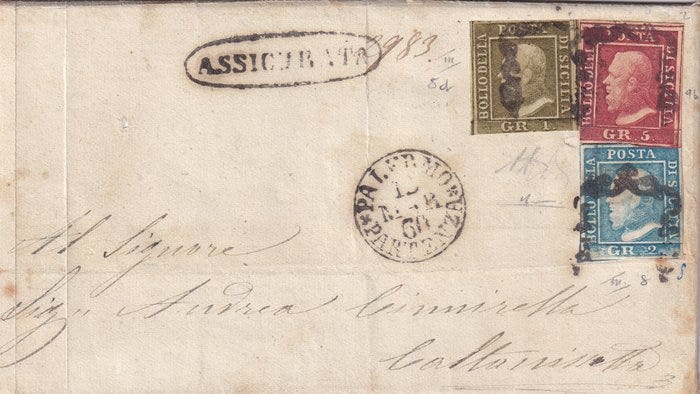 ASSICURATA
2983
BOLLO DELLA POSTA DI SICILIA
GR. 1
BOLLO DELLA POSTA DI SICILIA
GR. 5.
BOLLO DELLA POSTA DI SICILIA
GR. 2
m
8
PALERMO
MAR
60
PARTENZA
Al Signore
Sig.r Andrea
Caltanisetta